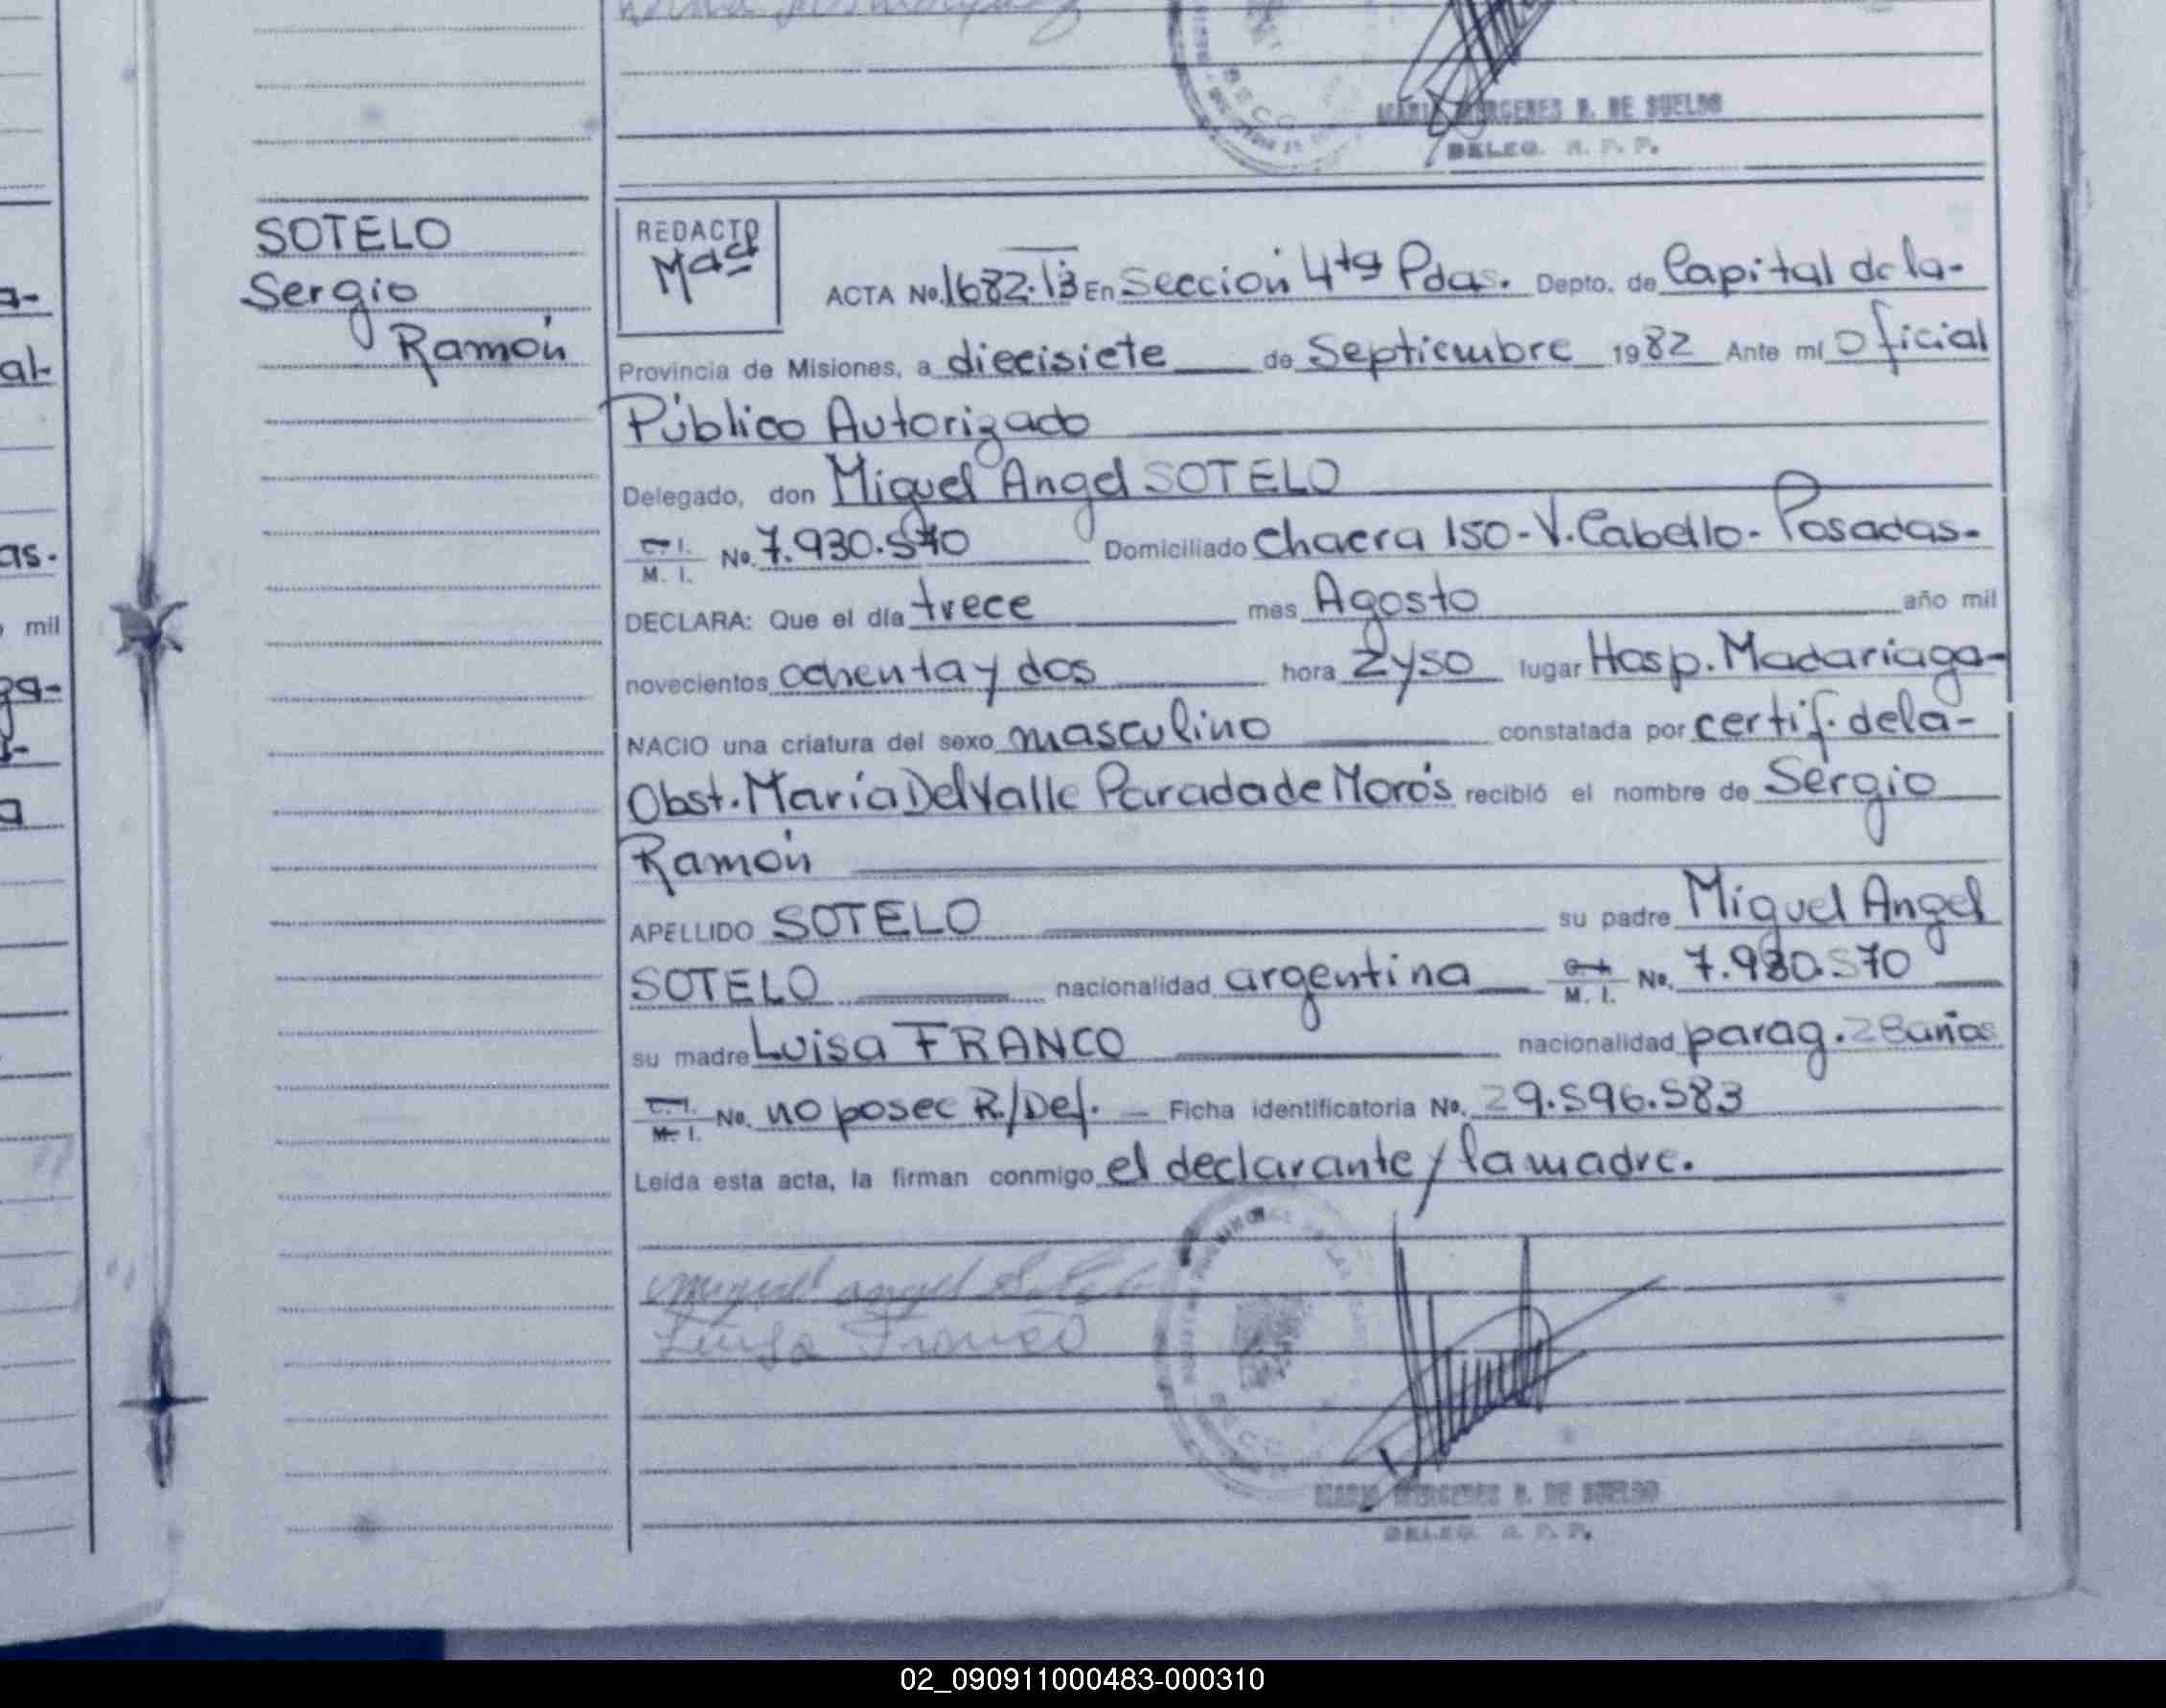 MARIA MERGENES R. DE SUELDO
DELEG. R. P. P.
SOTELO
Sergio
Ramón
REDACTO
ACTA No. 1682. En Sección 4ta Pdas. Depto. de Capital de la-
Provincia de Misiones, a diecisiete de Septiembre 1982 Ante mí Oficial
Público Autorizado
Delegado, don Miguel Angel SOTELO
C. I. M. I. No. 7.930.570 Domiciliado Chacra 150-V. Cabello- Posadas-
DECLARA: Que el día trece mes Agosto año mil
novecientos ochenta y dos hora 2y50 lugar Hosp. Madariaga-
NACIO una criatura del sexo masculino constatada por certif. de la-
Obst. María Del Valle Parada de Morós recibió el nombre de Sergio
Ramón
APELLIDO SOTELO su padre Miguel Angel
SOTELO nacionalidad argentina C. I. M. I. No. 7.930.570
su madre Luisa FRANCO nacionalidad parag. 28 años
C. I. M. I. No. no posee R./Def. Ficha identificatoria No. 29.596.583
Leída esta acta, la firman conmigo el declarante y la madre.
miguel angel Sotelo
Luisa Franco
MARIA MERGENES R. DE SUELDO
DELEG. R. P. P.
02_090911000483-000310